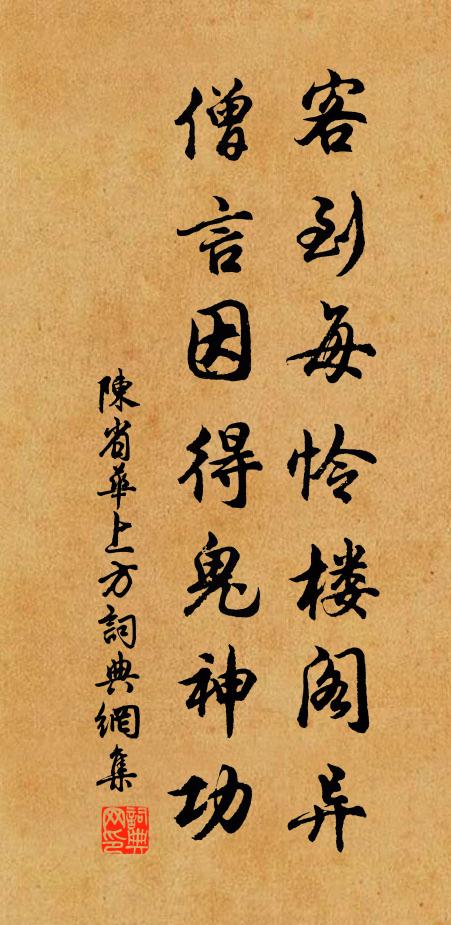 客到每怜楼阁异
僧言因得鬼神功
陳省華上方詞典網集
詞典网印